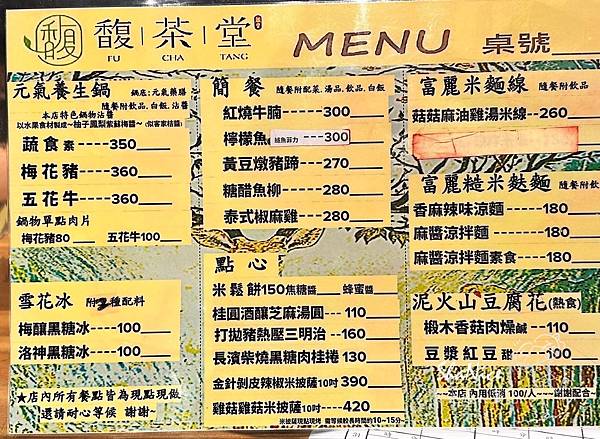 馥茶堂
FU CHA TANG
MENU 桌號
元氣養生鍋 鍋底:元氣藥膳
隨餐附飲品,白飯,沾醬
本店特色鍋物沾醬
以水果食材製成~柚子鳳梨紫蘇梅醬~ (似客家桔醬)
蔬食 素---350
梅花豬----360
五花牛----360
鍋物單點肉片
梅花豬80 五花牛100
雪花冰 附2種配料
梅釀黑糖冰----100
洛神黑糖冰----100
★店內所有餐點皆為現點現做
還請耐心等候 謝謝~
簡餐 隨餐附配菜,湯品,飲品,白飯
紅燒牛腩----300
檸檬魚 鱸魚菲力 ---300
黃豆燉豬蹄---270
糖醋魚柳----280
泰式椒麻雞---280
點心
米鬆餅150 焦糖醬 蜂蜜醬
桂圓酒釀芝麻湯圓---110
打拋豬熱壓三明治 --160
長濱柴燒黑糖肉桂捲 130
金針剝皮辣椒米披薩10吋 390
雞菇雞菇米披薩10吋---420
米披薩現點現烤 需等候較長時間約10~15分
富麗米麵線 隨餐附飲品
菇菇麻油雞湯米線--260
富麗糙米麩麵 隨餐附飲
香麻辣味涼麵 -----180
麻醬涼拌麵 ------180
麻醬涼拌麵素食----180
泥火山豆腐花(熱食)
椴木香菇肉燥 鹹--110
豆漿紅豆 甜----100
~~本店 內用低消 100/人~~~謝謝配合~